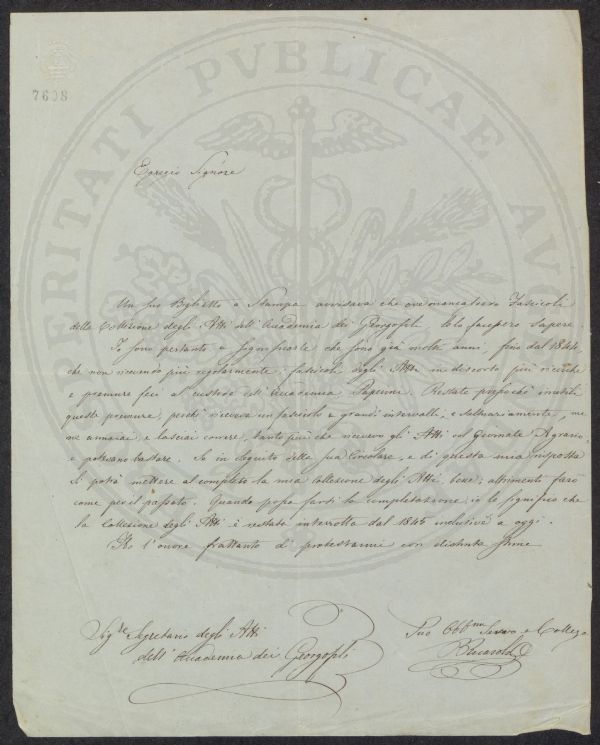 7698
PROSPERITATI PVBLICAE AVGENDAE
Egregio Signore
Un suo Biglietto a Stampa avvisava che ove mancassero Fascicoli
della Collezione degli Atti dell'Accademia dei Georgofili, lo si facesse sapere.
Io sono pertanto a significarle che sono già molti anni, fino dal 1844,
che non ricevendo più regolarmente i fascicoli degli Atti, ne più ricerche
e premure feci al custode dell'Accademia Papini. Restate pressochè inutili
queste premure, perchè riceveva un fascicolo a grandi intervalli, e saltuariamente, me
ne annoiai, e lasciai correre, tanto più che ricevevo gli Atti col Giornale Agrario
e potevano bastare. Se in seguito della sua Circolare, e di questa mia risposta
si potrà mettere al completo la mia collezione degli Atti, bene; altrimenti farò
come per il passato. Quando possa farsi la completazione, io le significo che
la Collezione degli Atti è restata interrotta dal 1845 inclusive a oggi.
Ho l'onore frattanto di protestarmi con distinta stima
Sig.re Segretario degli Atti
dell'Accademia dei Georgofili
Suo Obb.mo Servo e Collega
BRicasoli